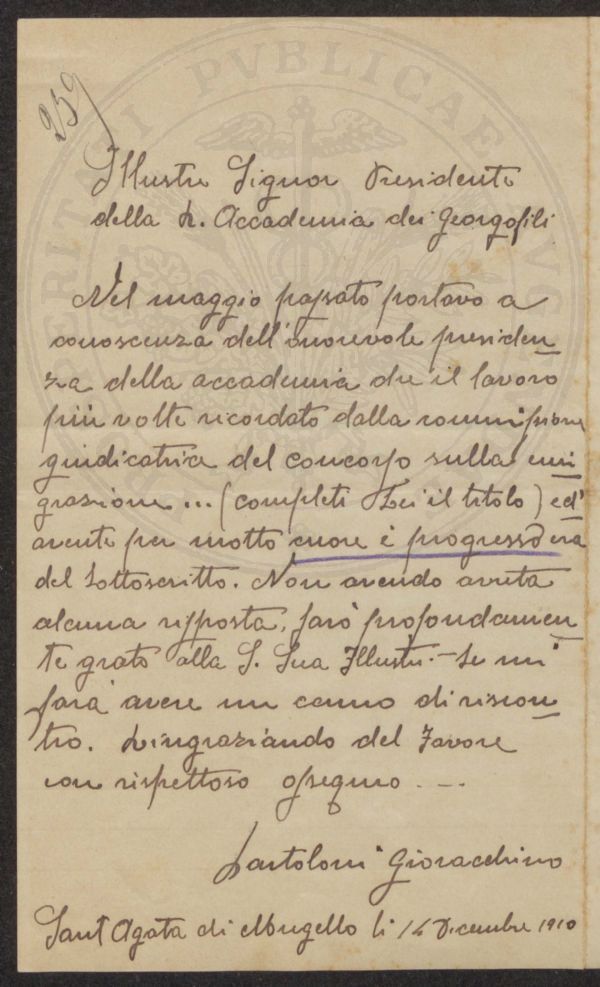 259
PROSPERITATI PVBLICAE
Illustre Signor Presidente
della R. Accademia dei Georgofili
Nel maggio passato portavo a
conoscenza dell'onorevole presiden
za della accademia che il lavoro
più volte ricordato dalla commissione
giudicatrice del concorso sulla emi
grazione ... (completi Lei il titolo) ed
avente per motto cuore è progresso era
del Sottoscritto. Non avendo avuta
alcuna risposta, sarò profondamen
te grato alla S. Sua Illustr. - Se mi
farà avere un cenno di riscon
tro. Ringraziando del Favore
con rispettoso ossequio . - .
Bartoloni Gioacchino
Sant'Agata di Mugello li 14 Dicembre 1910